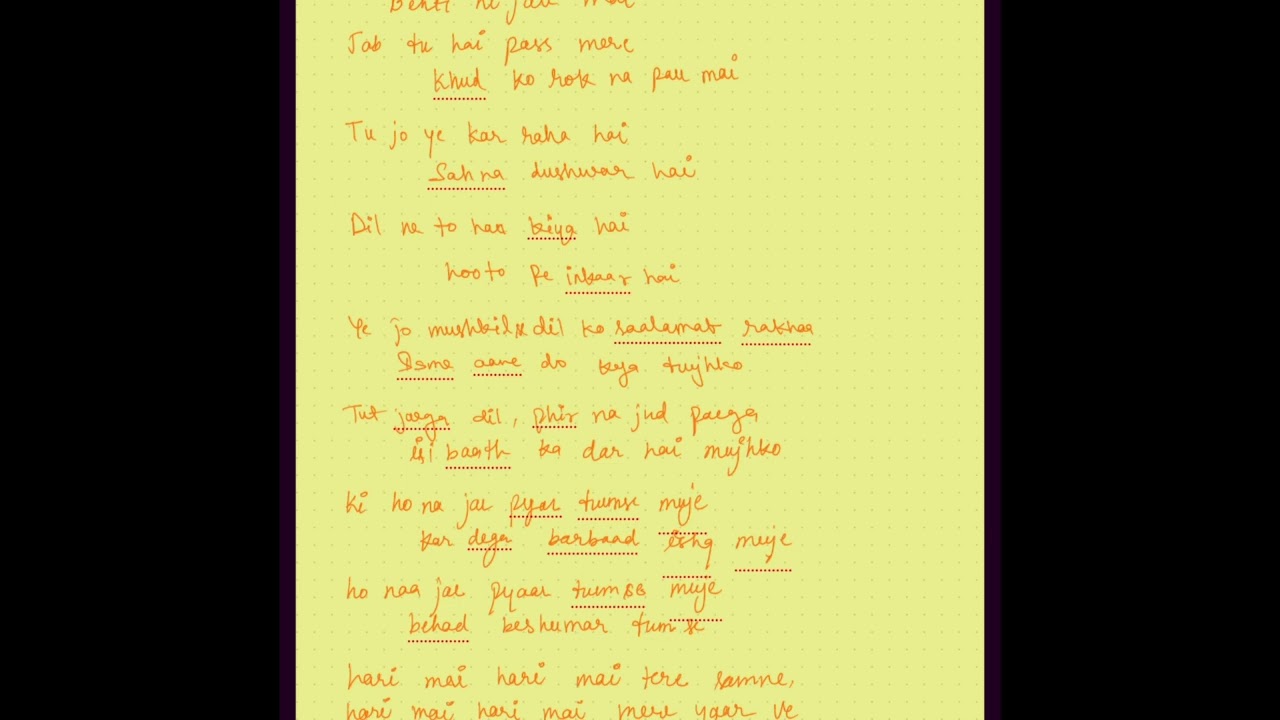 Jab tu hai pass mere
khud ko rok na pau mai
Tu jo ye kar raha hai
Sah na dushwar hai
Dil ne to haa kiya hai
hooto pe inkaar hai
Ye jo mushkil dil ko saalamat rakhaa
Isme aane do kya tujhko
Tut jaega dil, phir na jud paega,
isi baath ka dar hai mujhko
Ki ho na jae pyar tumse muje
kar dega barbaad ishq muje
ho naa jae pyaar tumse muje
behad beshumar tum se
hari mai hari mai tere samne,
hari mai hari mai mere yaar ve